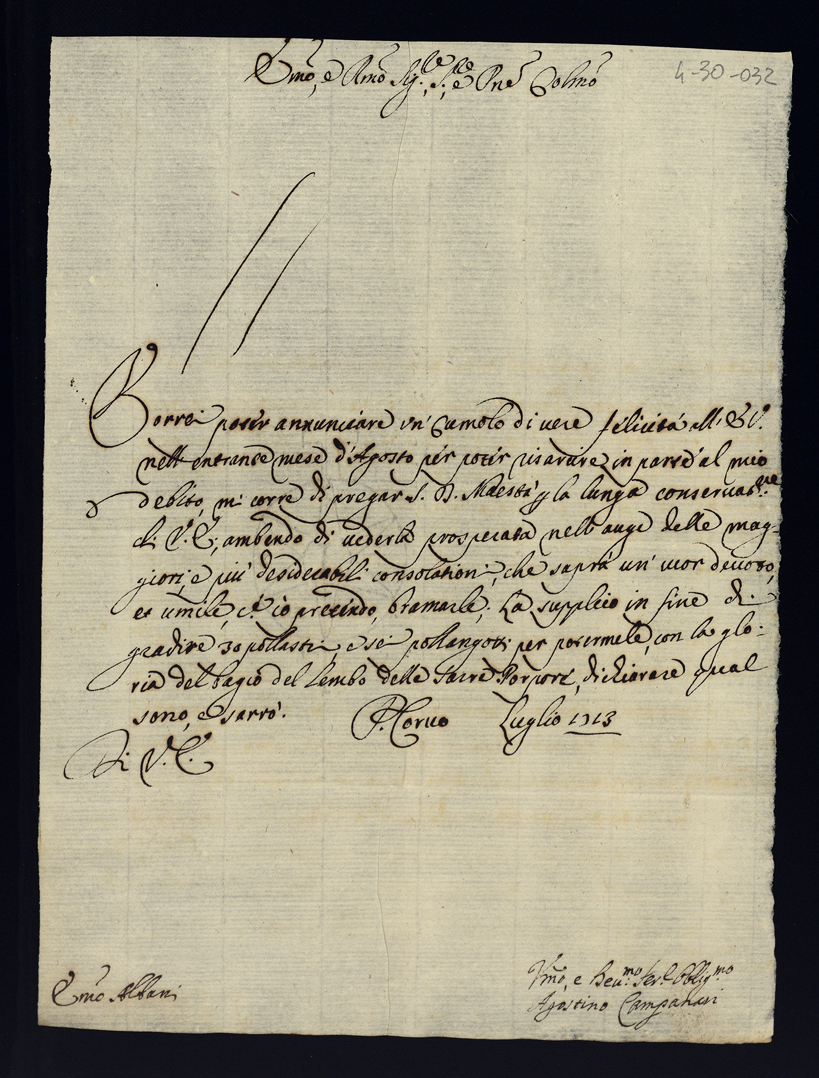 4-30-032
Emo, e Rmo Sig.re, S.re e Pne Colmo
Vorrei poter annunciare un' Cumolo di vere felicità all' E V.
nell' entrante mese d'Agosto per poter risarcire in parte al mio
debito, mi corre di pregar S. D. Maestà p la lunga conservat.ne
di V. E., ambendo di vederla prosperata nell' auge delle mag-
giori, e più desiderabili consolationi, che saprà un' cuor devoto,
et umile, c.e io pretendo, bramarle; La supplico in fine di
gradire 30 pollastri, e sei pollangotti per potermele, con la glo:
ria del bagio del Lembo delle Sacre Porpore, dichiarare qual
sono, e sarrò. P. Corvo Luglio 1713
Di V. E.
Emo Albani
Vmo, e Deu.mo Ser.e Oblig.mo
Agostino Campanari